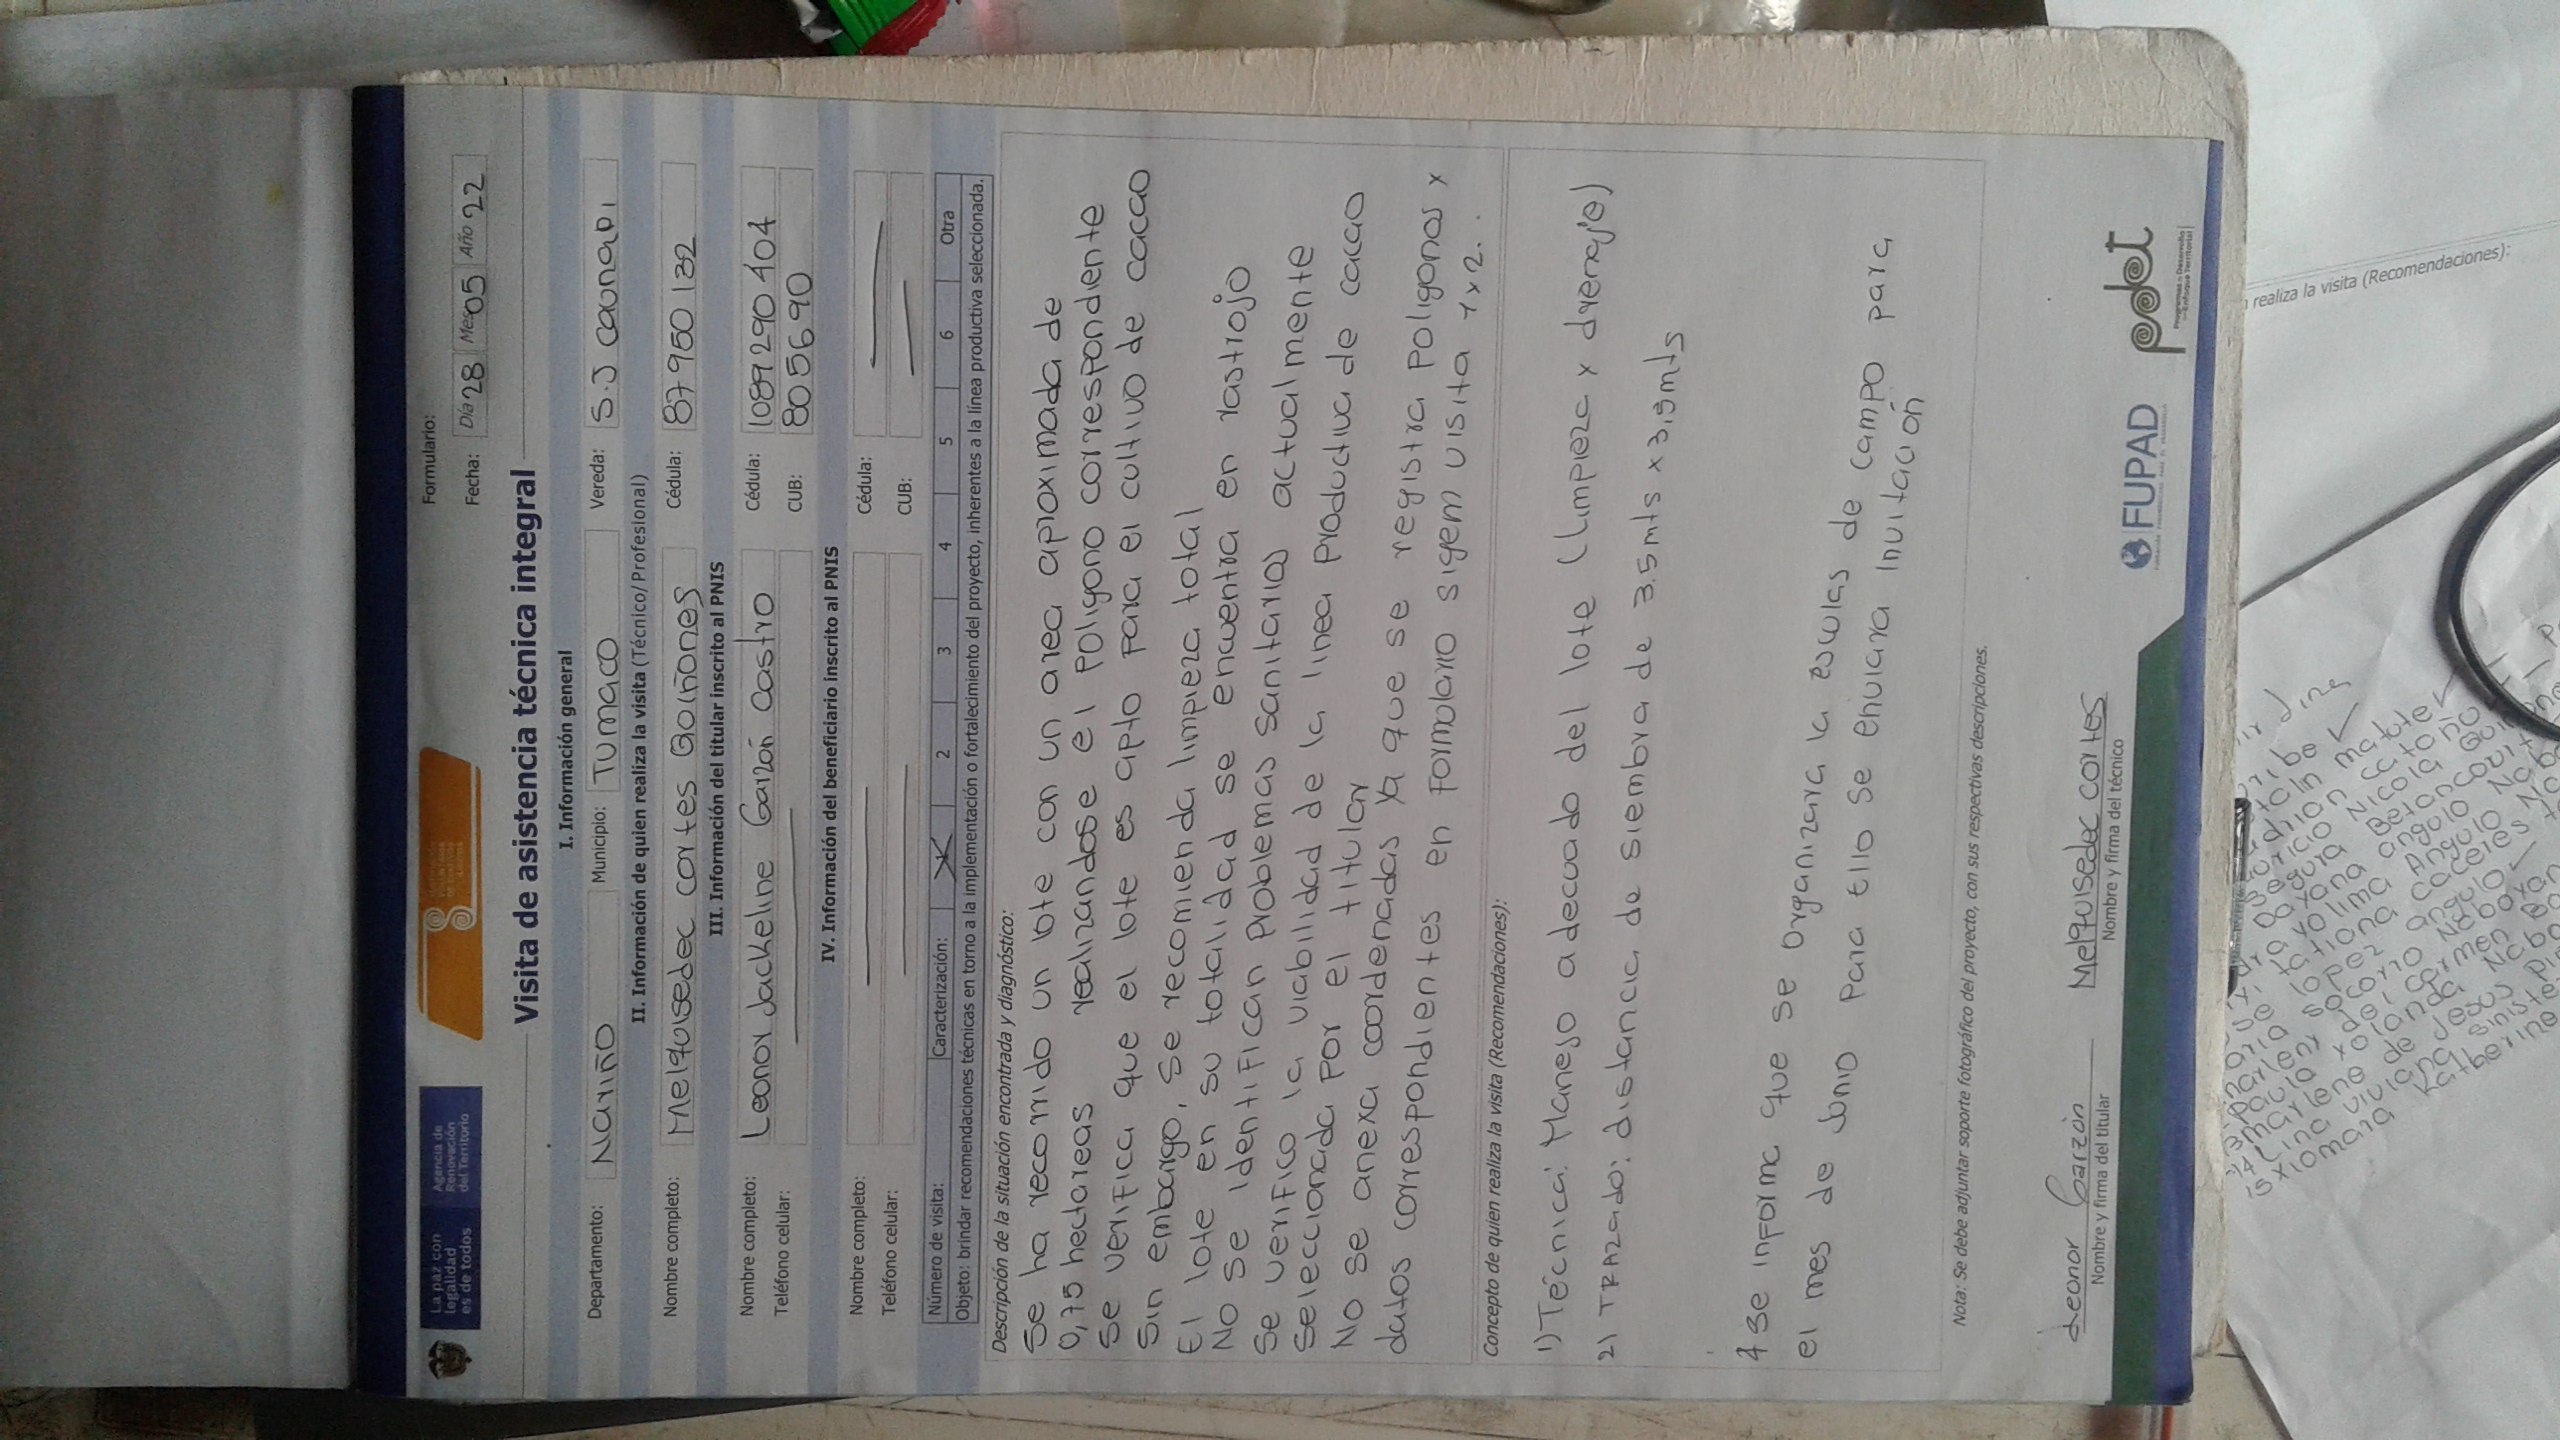 La paz con
legalidad
es de todos
Agencia de
Renovación
del Territorio
Formulario:
Fecha: Día 28 Mes 05 Año 22
Visita de asistencia técnica integral
I. Información general
Departamento: Nariño Municipio: Tumaco Vereda: S.J caonapi
II. Información de quien realiza la visita (Técnico/Profesional)
Nombre completo: Melquisedec cortes Qoiñones Cédula: 87950132
III. Información del titular inscrito al PNIS
Nombre completo: Leonor Jackeline Garzón Castro Cédula: 1089290404
Teléfono celular: CUB: 8056690
IV. Información del beneficiario inscrito al PNIS
Nombre completo: Cédula:
Teléfono celular: CUB:
Número de visita: Caracterización: X 2 3 4 5 6 Otra
Objeto: brindar recomendaciones técnicas en torno a la implementación o fortalecimiento del proyecto, inherentes a la línea productiva seleccionada.
Descripción de la situación encontrada y diagnóstico:
Se ha recorrido un lote con un area aproximada de
0,75 hectareas realizandose el Poligono correspondiente
Se verifica que el lote es apto para el cultivo de cacao
Sin embargo, se recomienda limpieza total
El lote en su totalidad se encuentra en rastrojo
No se identifican problemas sanitarios actualmente
Se verifico la viabilidad de la linea productiva de cacao
Seleccionada por el titular
No se anexa coordenadas ya que se registra poligonos x
datos correspondientes en formulario sigem visita 1x2.
Concepto de quien realiza la visita (Recomendaciones):
1) Técnica: Manejo adecuado del lote (Limpieza x drenaje)
2) TRAZado: distancia de siembra de 3.5mts x 3,5mts
4 Se informa que se organizara la escuelas de campo para
el mes de Junio para ello se enviara invitación
Nota: Se debe adjuntar soporte fotográfico del proyecto, con sus respectivas descripciones.
Leonor Garzón Melquisedec cortes
Nombre y firma del titular Nombre y firma del técnico
FUPAD
pdet
Programas de Desarrollo
con Enfoque Territorial
realiza la visita (Recomendaciones):